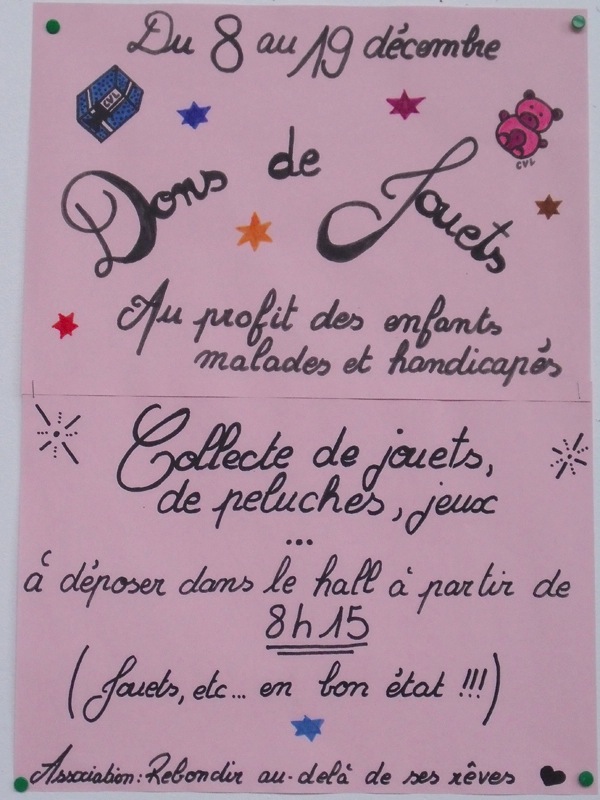 Du 8 au 19 décembre
CVL
CVL
Dons de Jouets
Au profit des enfants
malades et handicapés
Collecte de jouets,
de peluches, jeux
...
à déposer dans le hall à partir de
8h15
(Jouets, etc... en bon état !!!)
Association: Rebondir au-delà de ses rêves